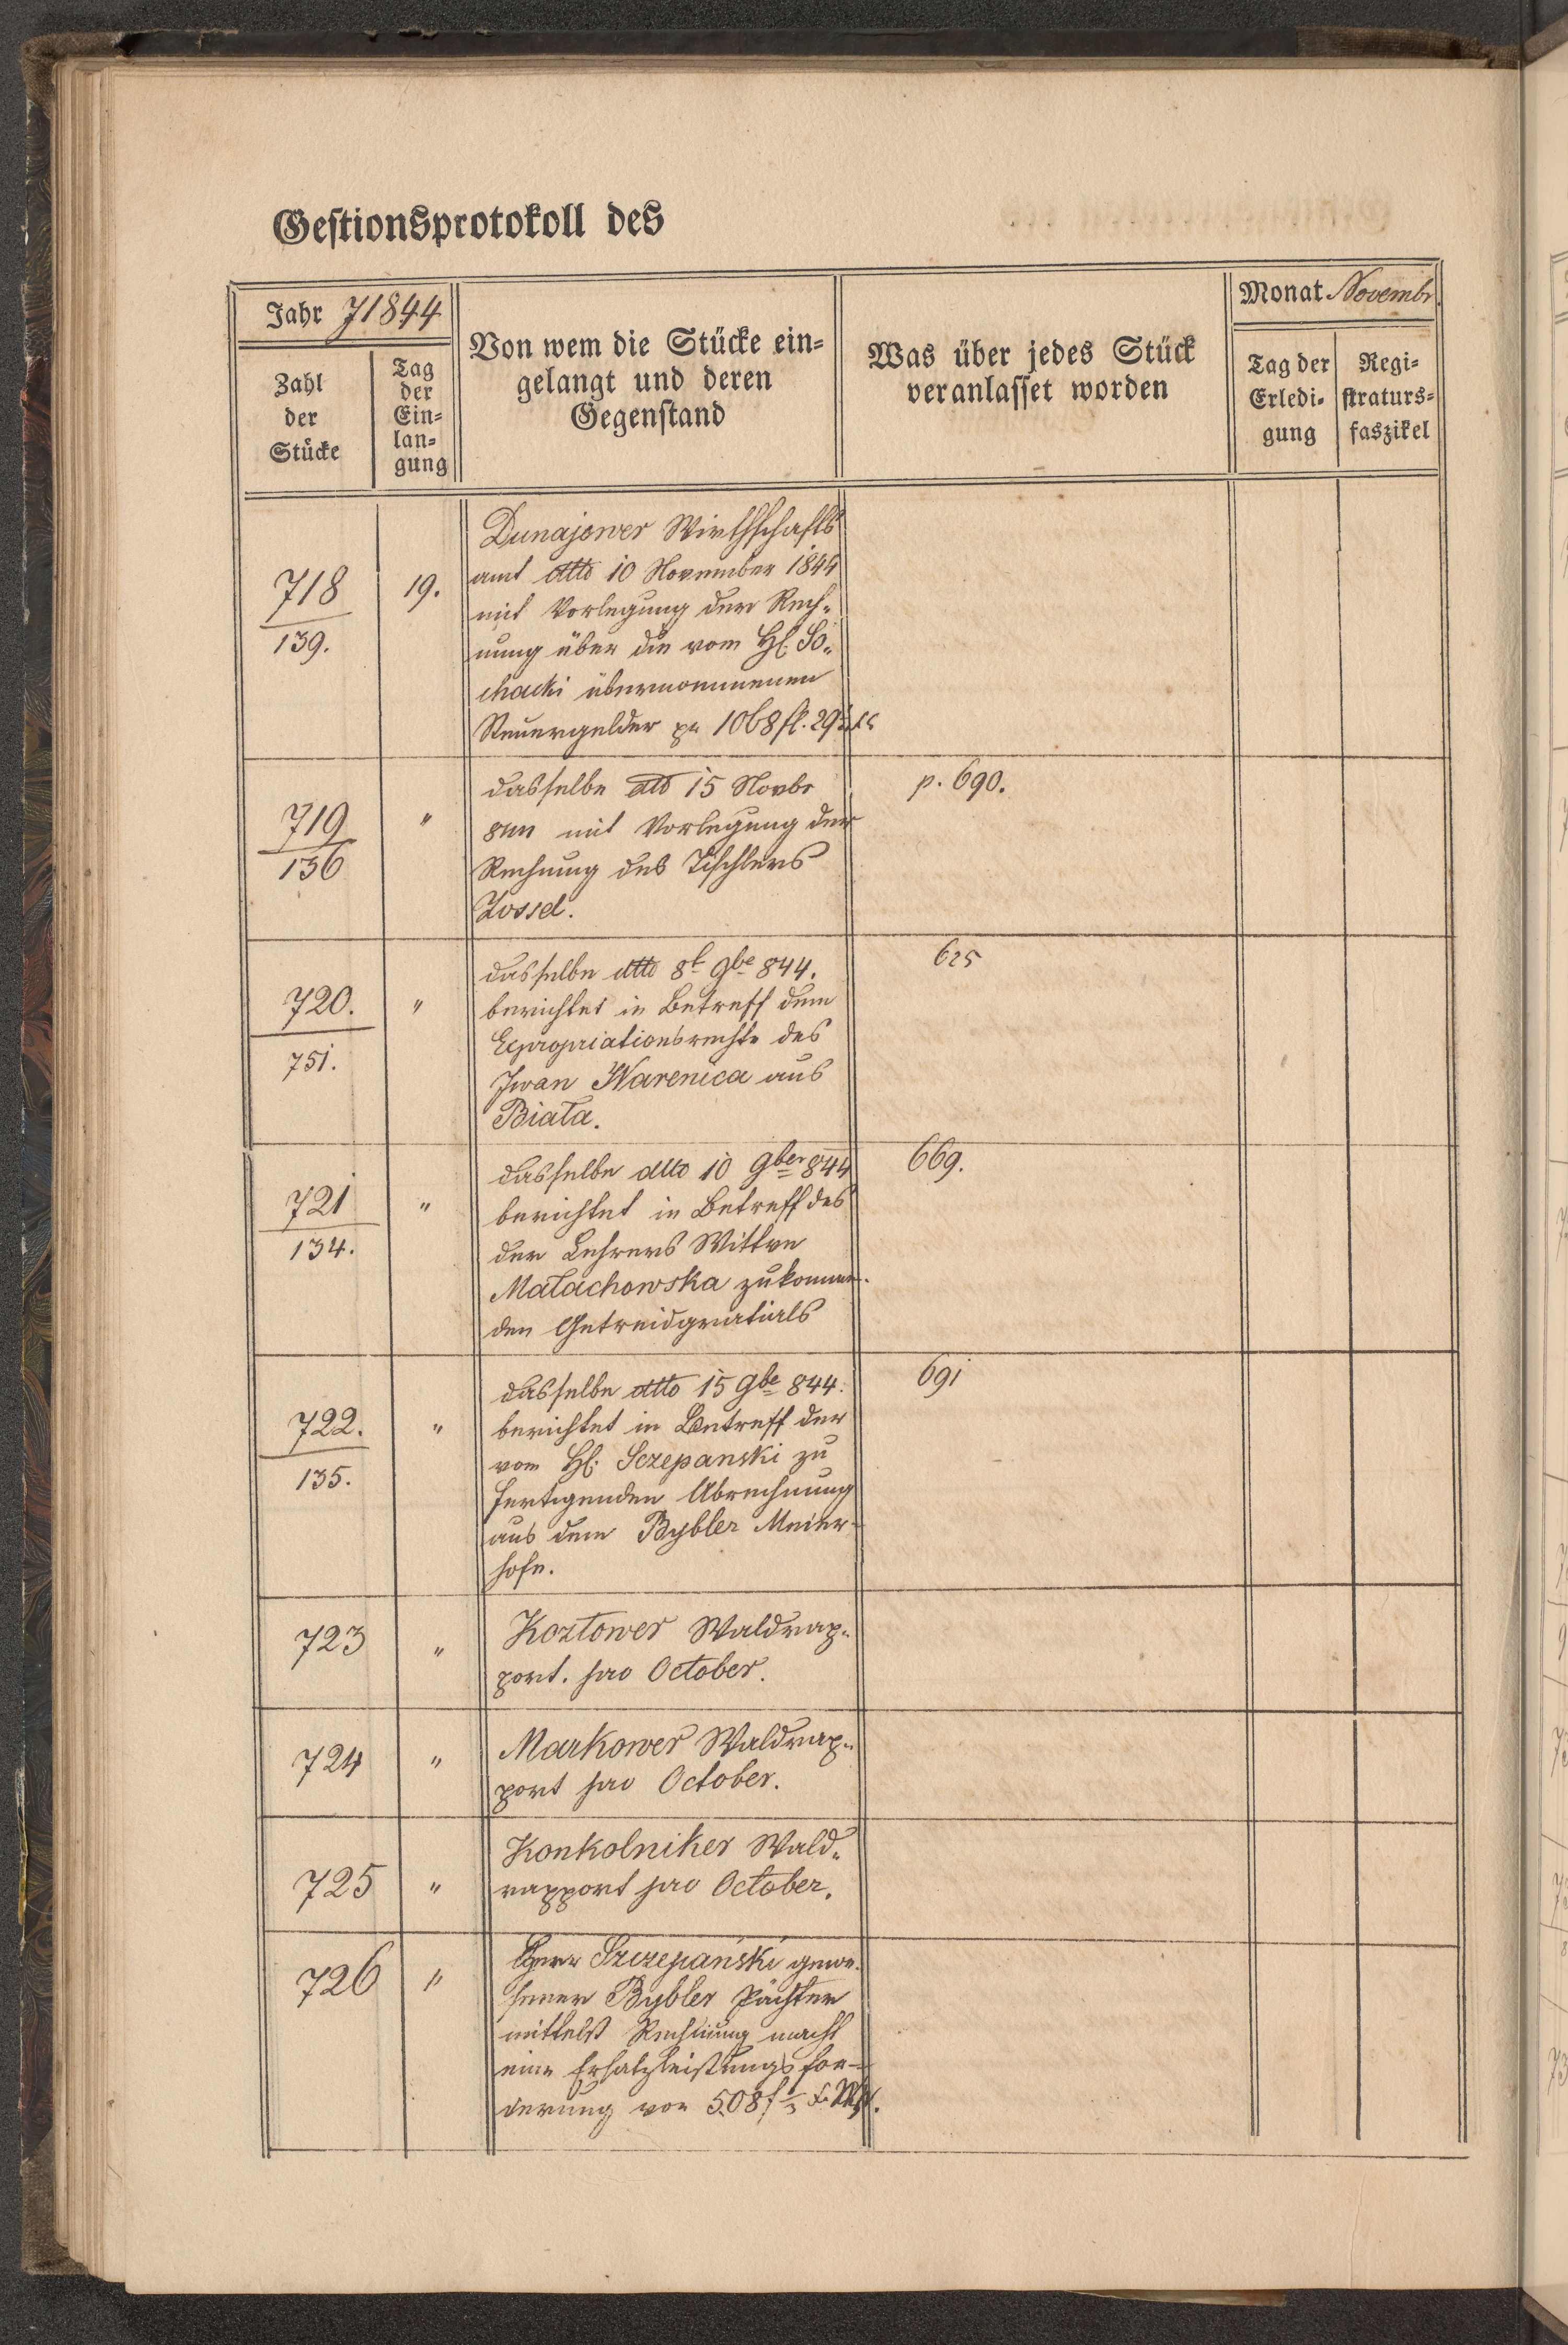 Gestionsprotokoll des
Jahr 1844
Monat Novembr.
Zahl der Stücke
Tag der Ein=lan=gung
Von wem die Stücke ein=
gelangt und deren
Gegenstand
Was über jedes Stück
veranlasset worden
Tag der Erledi=gung
Regi=straturs=faszikel
718
139.
19.
Dunajower Wirthschafts
amt dtto 10 November 1844
mit Vorlegung der Rech=
nung über die vom H. So=
chacki übernommenen
Steuergelder pr 1068 fl. 29
719
136
"
dasselbe dtto 15 Novbr
844 mit Vorlegung der
Rechnung des Tischlers
Jossel.
p. 690.
720.
751.
"
dasselbe dtto 8t 9be 844.
berichtet in Betreff dem
Expropriationsrechte des
Iwan Warenica aus
Biała.
625
721
134.
"
dasselbe dtto 10 9ber 844
berichtet in Betreff des
der Lehrers Wittwe
Małachowska zukommen=
den Getreidgratials
669.
722.
135.
"
dasselbe dtto 15 9be 844.
berichtet in Betreff der
vom H. Sczepanski zu
fertigenden Abrechnung
aus dem Bybler Meier=
hofe.
691
723
"
Kozłower Waldrap=
port. pro October.
724
"
Markower Waldrap=
port pro October.
725
"
Konkolniker Wald=
rapport pro October.
726
"
Herr Szczepański gewe=
sener Bybler Pächter
mittelst Rechnung macht
eine Ersatzleistungsfor=
derung von 508 f